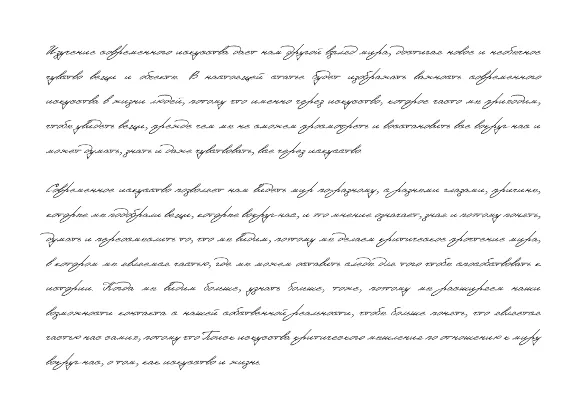 Изучение современного искусства дает нам другой взгляд мира, достигая новое и необычное
чувство вещи и объекта. В настоящей статье будет изображать важность современного
искусства в жизни людей, потому что именно через искусство, которое часто мы приходим,
чтобы увидеть вещи, прежде чем мы не сможем просмотреть и восстановить все вокруг нас и
может думать, знать и даже чувствовать, все через искусство.
Современное искусство позволяет нам видеть мир по-разному, с разными глазами, причине,
которые мы подобрали вещи, которые вокруг нас, и это мнение означает, зная и поэтому понять,
думать и переосмыслить то, что мы видим, потому мы делаем критическое прочтение мира,
в котором мы являемся частью, где мы можем оставить след для того чтобы способствовать к
истории. Когда мы видим больше, узнать больше, тоже, потому мы расширяем наши
возможности контакта с нашей собственной реальности, чтобы больше понять, что является
частью нас самих, потому что Поиск искусства критического мышления по отношению к миру
вокруг нас, о том, как искусство и жизнь.